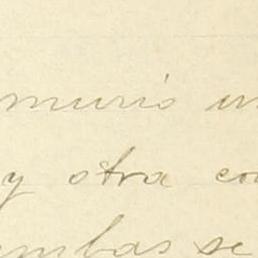 murió un
y otra co
ambas se